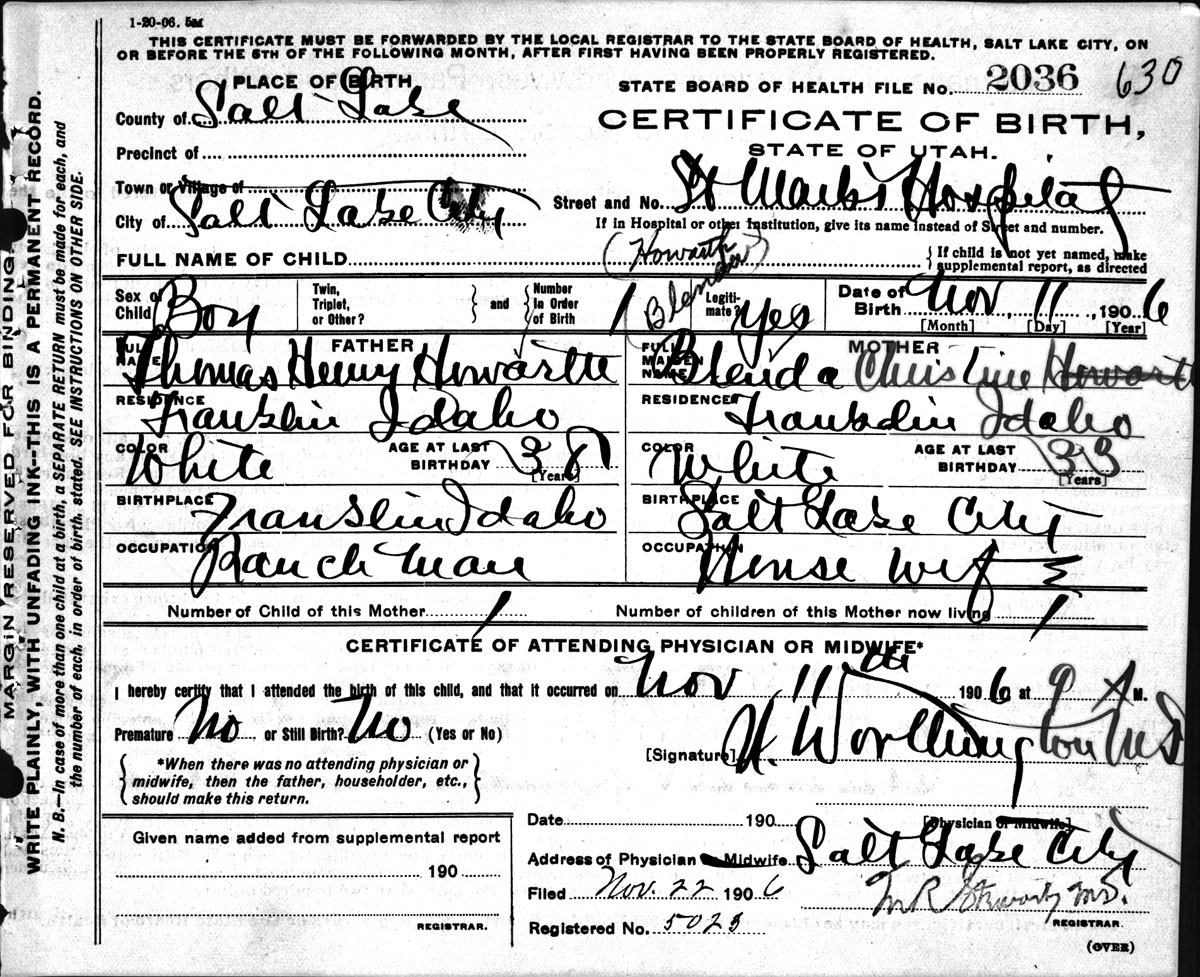 1-20-06. 5M
THIS CERTIFICATE MUST BE FORWARDED BY THE LOCAL REGISTRAR TO THE STATE BOARD OF HEALTH, SALT LAKE CITY, ON
OR BEFORE THE 5TH OF THE FOLLOWING MONTH, AFTER FIRST HAVING BEEN PROPERLY REGISTERED.
PLACE OF BIRTH
STATE BOARD OF HEALTH FILE No. 2036 630
County of Salt Lake
CERTIFICATE OF BIRTH,
STATE OF UTAH.
Precinct of
Town or Village of
Street and No. St Marks Hospital
City of Salt Lake City
If in Hospital or other Institution, give its name instead of Street and number.
FULL NAME OF CHILD (Howarth
{If child is not yet named, make
supplemental report, as directed
Sex of Child Boy
Twin, Triplet, or Other? } and { Number In Order of Birth 1
(Blenda)
Legiti-mate? yes
Date of Birth Nov 11, 1906
[Month] [Day] [Year]
FATHER
FULL NAME Thomas Henry Howarth
RESIDENCE Franklin Idaho
COLOR White AGE AT LAST BIRTHDAY 38 [Years]
BIRTHPLACE Franklin Idaho
OCCUPATION Ranch man
MOTHER
FULL MAIDEN NAME Blenda Christine Howart
RESIDENCE Franklin Idaho
COLOR White AGE AT LAST BIRTHDAY 33 [Years]
BIRTHPLACE Salt Lake City
OCCUPATION House wife
Number of Child of this Mother 1 Number of children of this Mother now living 1
CERTIFICATE OF ATTENDING PHYSICIAN OR MIDWIFE*
I hereby certify that I attended the birth of this child, and that it occurred on Nov 11th 1906 at 9 A M.
Premature No or Still Birth? No (Yes or No)
[Signature] W. Worthington M D
{*When there was no attending physician or
midwife, then the father, householder, etc.,
should make this return.}
[Physician or Midwife]
Date 190
Given name added from supplemental report
190
REGISTRAR.
Address of Physician or Midwife Salt Lake City
Filed Nov. 22 1906
M.D.
REGISTRAR.
Registered No. 5023
(OVER)
MARGIN RESERVED FOR BINDING.
WRITE PLAINLY, WITH UNFADING INK--THIS IS A PERMANENT RECORD.
N. B.—In case of more than one child at a birth, a SEPARATE RETURN must be made for each, and
the number of each, in order of birth, stated. SEE INSTRUCTIONS ON OTHER SIDE.